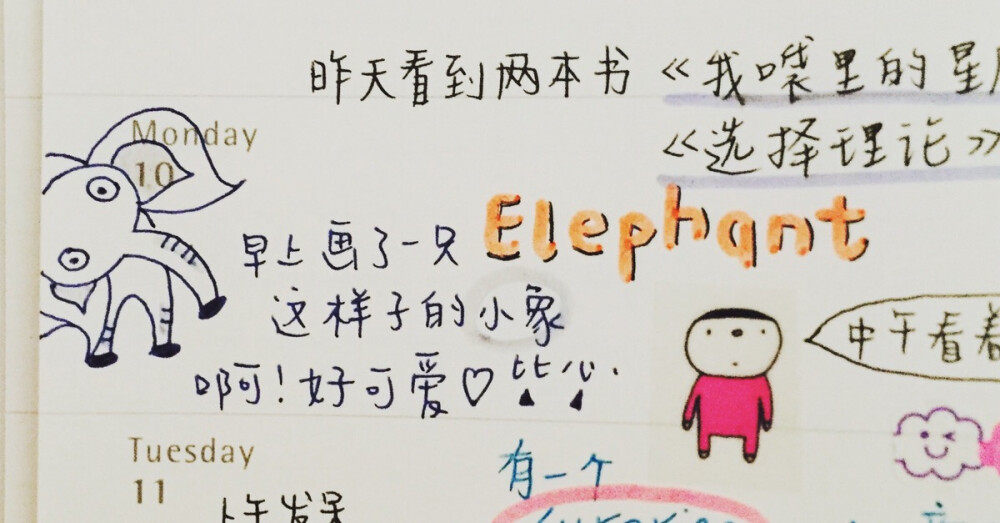 昨天看到两本书《我口袋里的星
《选择理论》
Monday
10
早上画了一只 Elephant
这样子的小象
啊!好可爱♡
中午看着
Tuesday
11
有一个
上午发呆